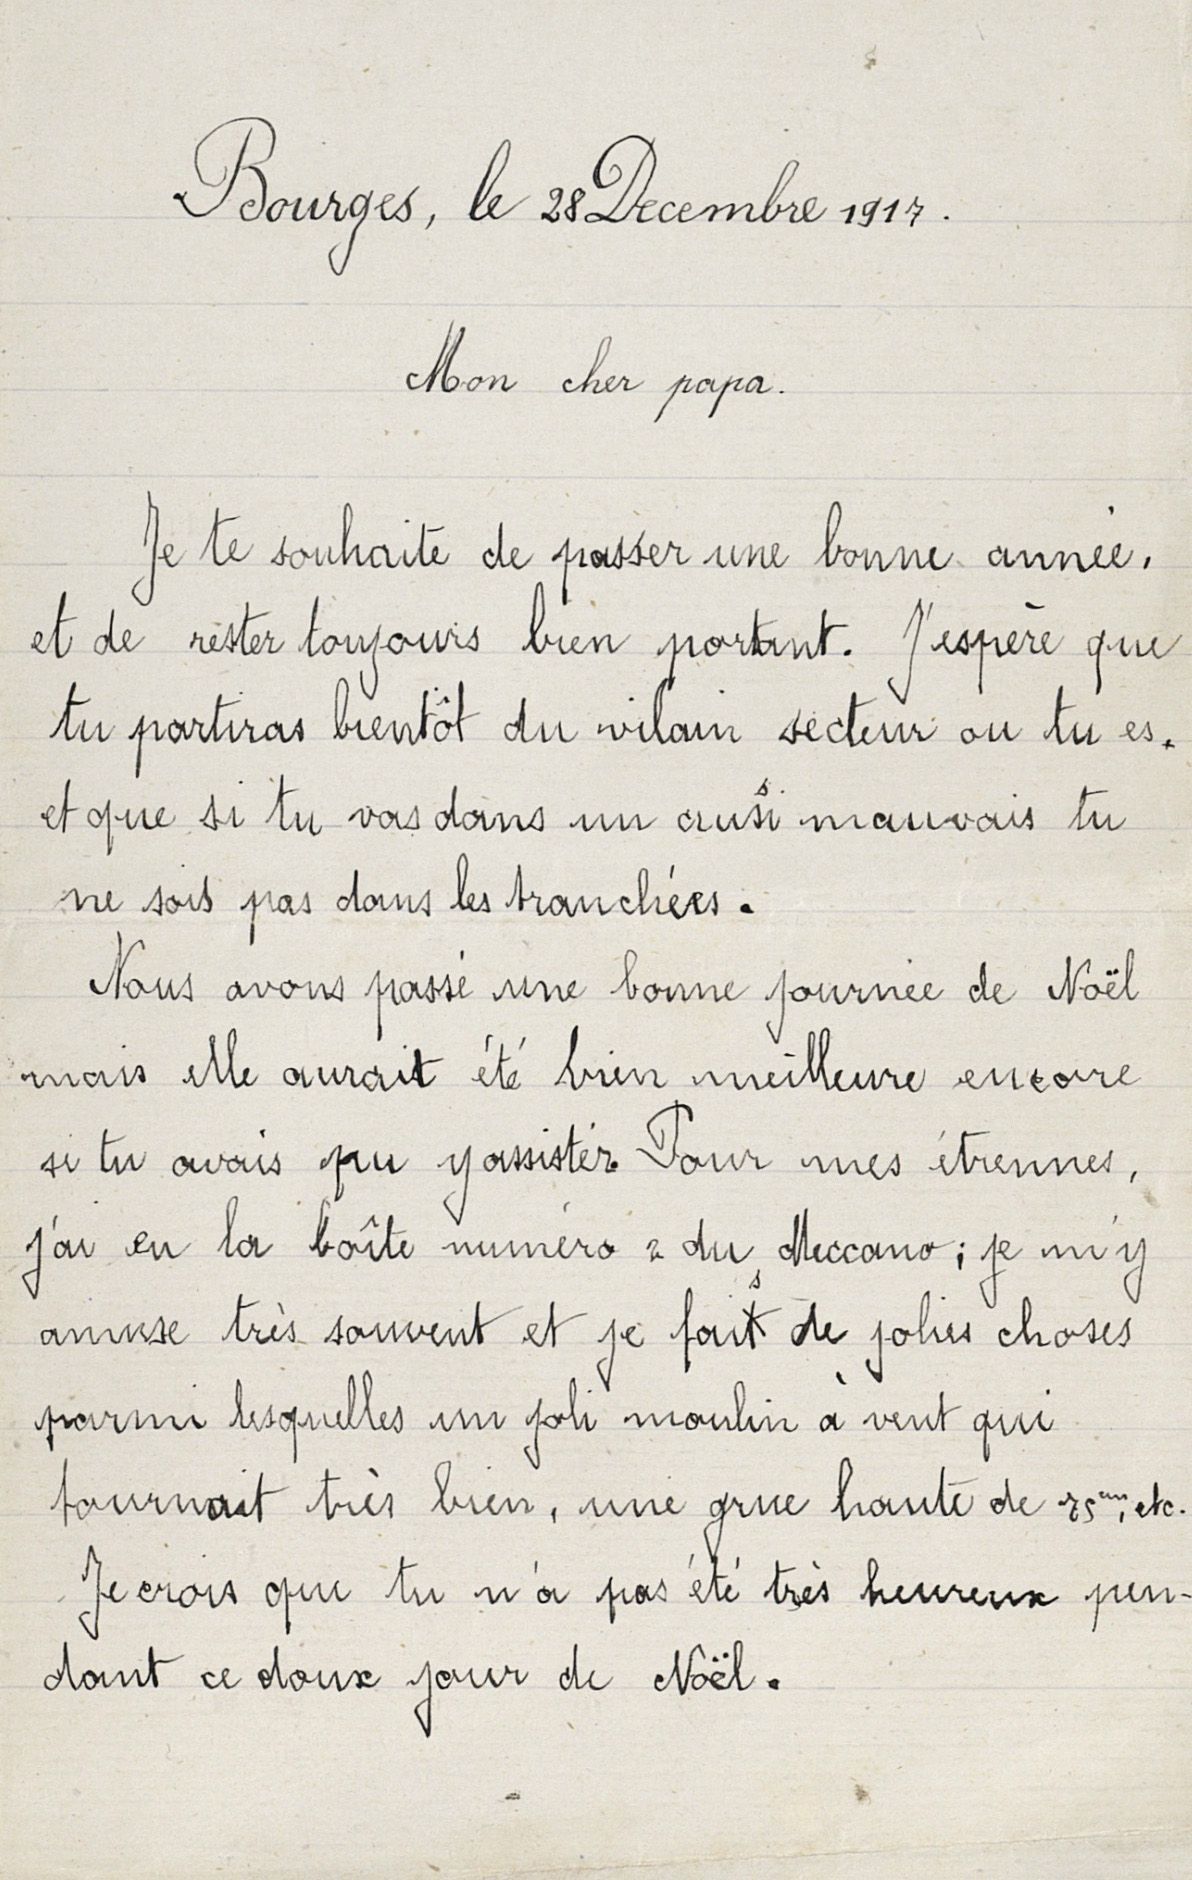 Bourges, le 28 Decembre 1917.
Mon cher papa.
Je te souhaite de passer une bonne année,
et de rester toujours bien portant. J'espère que
tu partiras bientôt du vilain secteur ou tu es.
et que si tu vas dans un aussi mauvais tu
ne sois pas dans les tranchées.
Nous avons passé une bonne journée de Noël
mais elle aurait été bien meilleure encore
si tu avais pu y assister. Pour mes étrennes,
j'ai eu la boîte numéro 2 du Meccano; je m'y
amuse très souvent et je fais de jolies choses
parmi lesquelles un joli moulin à vent qui
tournait très bien, une grue haute de 75 cm, etc.
Je crois que tu n'a pas été très heureux pen-
dant ce doux jour de Noël.